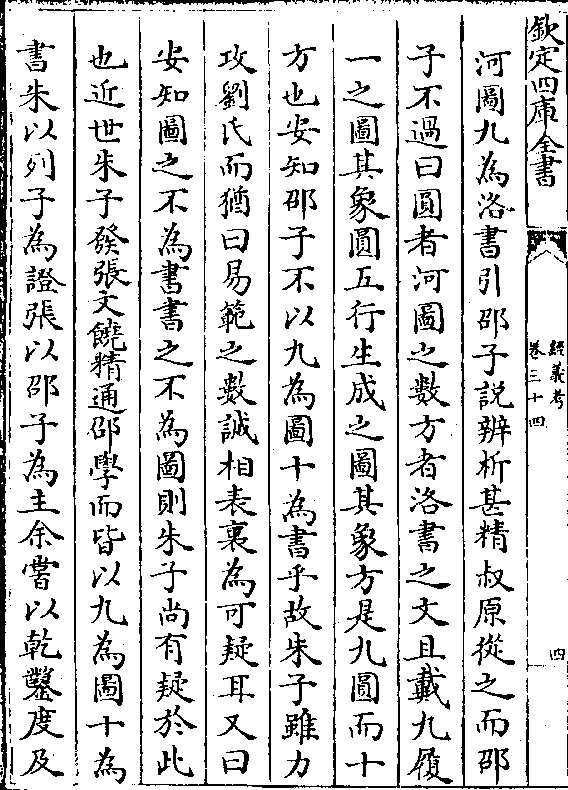 欽定四庫全書
經義考
卷三十四
四
河圖九為洛書引邵子說辨析甚精叔原從之而邵
子不過曰圓者河圖之數方者洛書之文且戴九履
一之圖其象圓五行生成之圖其象方是九圓而十
方也安知邵子不以九為圖十為書乎故朱子雖力
攻劉氏而猶曰易範之數誠相表裏為可疑耳又曰
安知圖之不為書書之不為圖則朱子尚有疑於此
也近世朱子發張文饒精通邵學而皆以九為圖十為
書朱以列子為證張以邵子為主余嘗以乾鑿度及